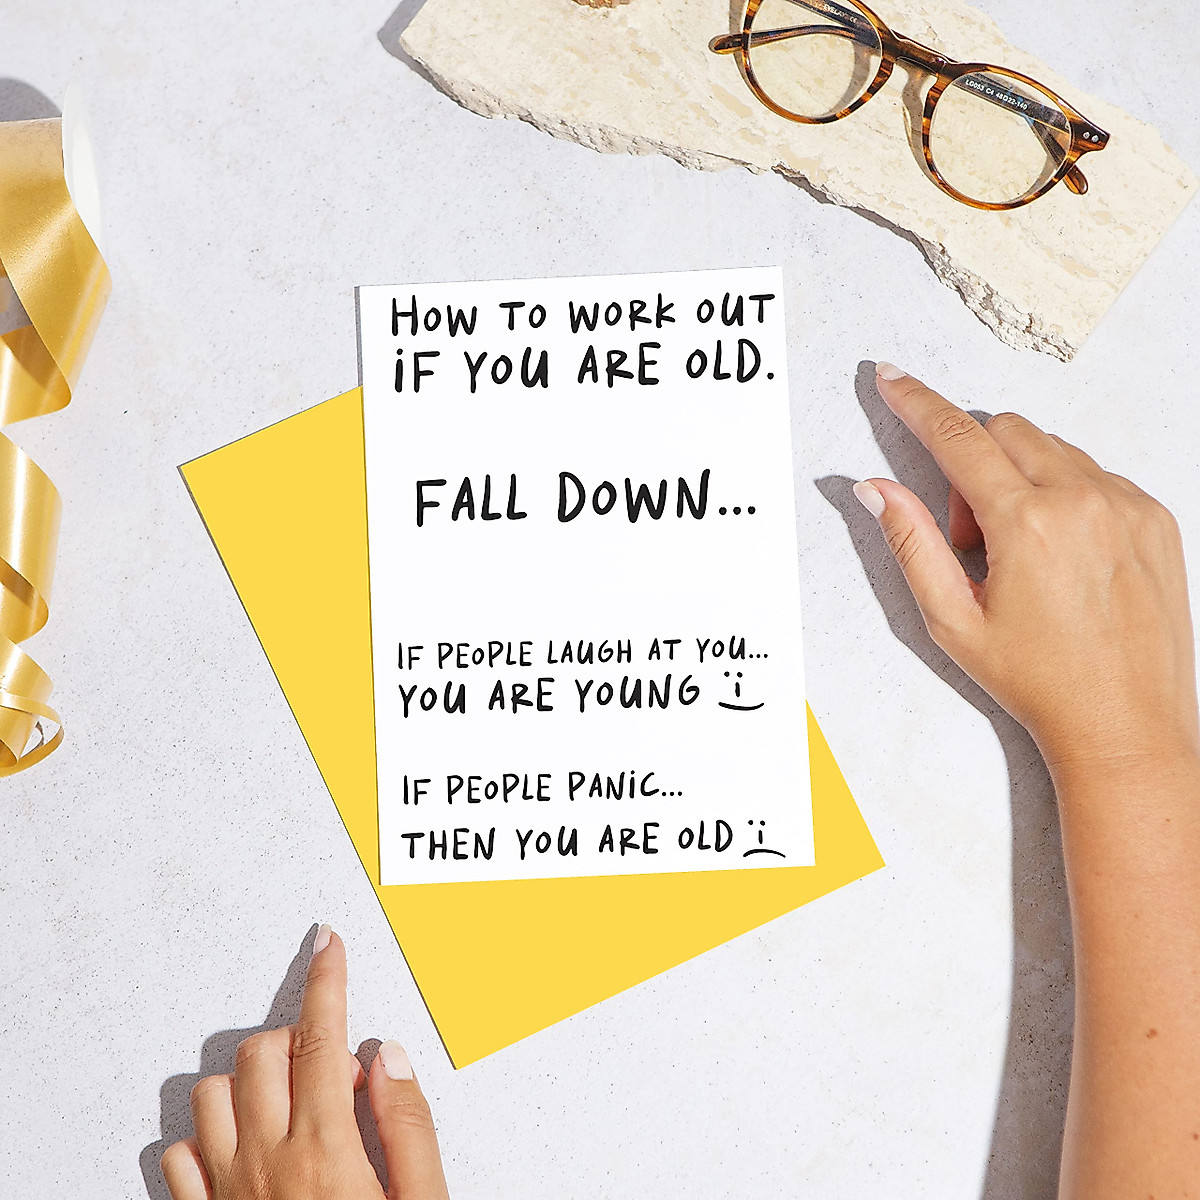 EYELAY CE
LG083 C4 48□22-140
HOW TO WORK OUT
IF YOU ARE OLD.
FALL DOWN...
IF PEOPLE LAUGH AT YOU...
YOU ARE YOUNG
IF PEOPLE PANIC...
THEN YOU ARE OLD